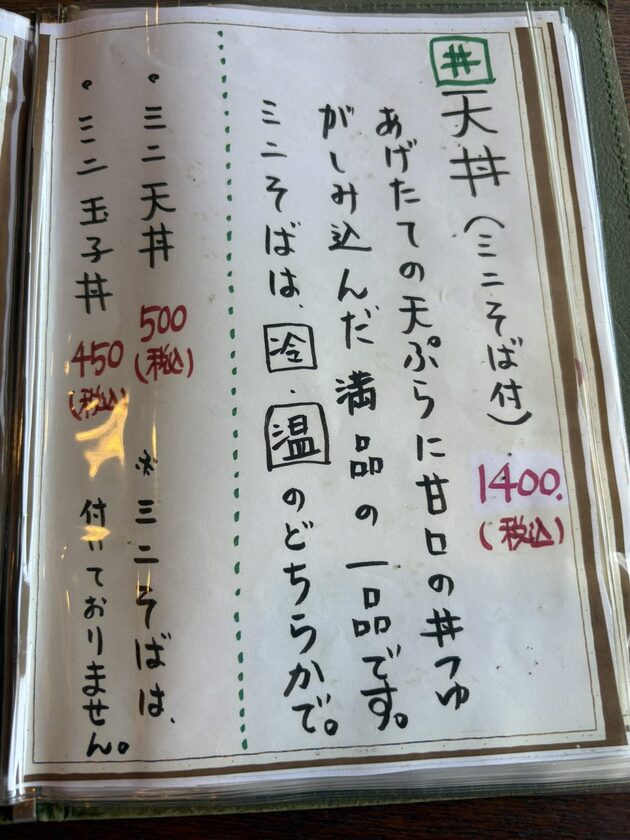 丼
天丼(ミニそば付)
1400.
(税込)
あげたての天ぷらに甘口の丼つゆ
がしみ込んだ満品の一品です。
ミニそばは、冷・温のどちらかで。
・ミニ天丼 500
(税込)
・ミニ玉子丼 450
(税込)
※ミニそばは、
付いておりません。